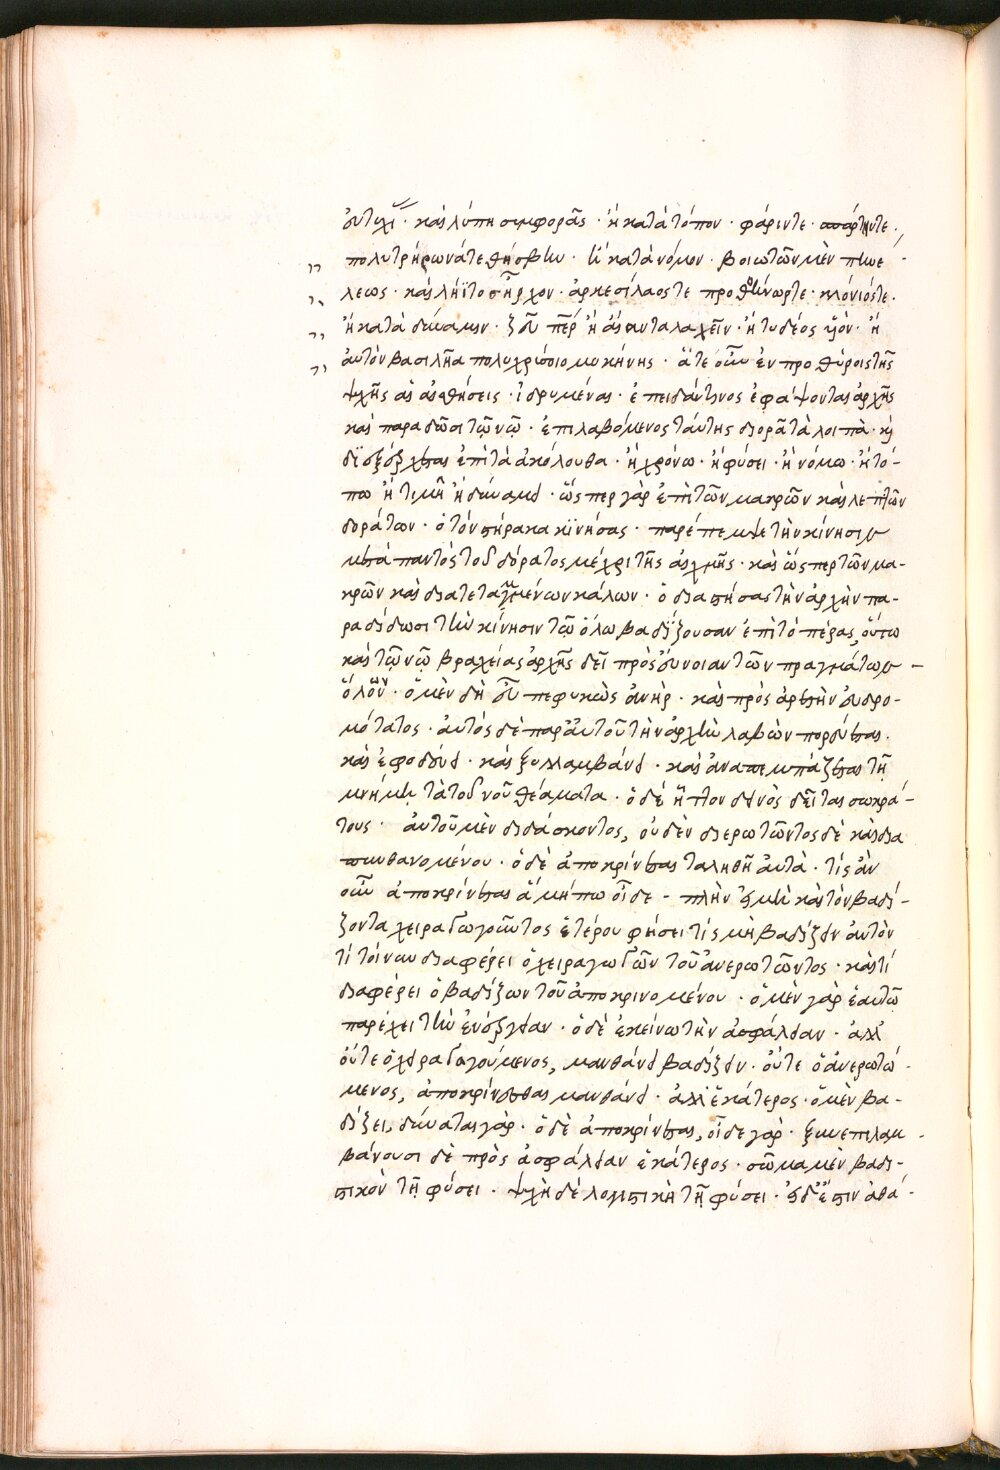 εὐτυχί · καὶ λύπη συμφορᾶς · ἢ κατὰ τόπον · φάριντε σπάρτηντε
πολυτρήρωνάτε θήσβην · ἢ κατὰ νόμον · βοιωτῶν μὲν πηνέ
λεως · καὶ λήϊτος ἦρχον · ἀρκεσίλαός τε προθοήνωρτε κλόνιόςτε ·
ἢ κατὰ δύναμιν · ἢ αἴαντα λαχεῖν · ἢ τυδέος υἱόν · ἢ
αὐτὸν βασιλῆα πολυχρύσοιο μυκήνης · ἅτε οὖν ἐν προθύροις τῆς
ψυχῆς αἱ αἰσθήσεις · ἱδρυμέναι · ἐπειδάν τινος ἐφάψονται ἀρχῆς
καὶ παραδῶσι τῷ νῷ · ἐπιλαβόμενος ταύτης διορᾷ τὰ λοιπὰ · καὶ
διεξέρχεται ἐπὶ τὰ ἀκόλουθα · ἢ χρόνω · ἢ φύσει · ἢ νόμω · ἢ τό-
πω ἢ τιμῇ ἢ δυνάμει · ὥσπερ γὰρ ἐπὶ τῶν μακρῶν καὶ λεπτῶν
δοράτων · ὁ τὸν στύρακα κϊνήσας · παρέπεμψε τὴν κίνησιν
μετὰ παντὸς τοῦ δόρατος μέχρι τῆς αἰχμῆς · καὶ ὥσπερ τῶν μα-
κρῶν καὶ διατεταμένων κάλων · ὁ διασείσας τὴν ἀρχὴν πα-
ραδίδωσι τὴν κίνησιν τῷ ὅλω βαδίζουσαν ἐπὶ τὸ πέρας, οὕτω
καὶ τῷ νῷ βραχείας ἀρχῆς δεῖ πρὸς ἔννοιαν τῶν πραγμάτων –
ὅλων · ὁ μὲν δὴ εὖ πεφυκὼς ἀνὴρ · καὶ πρὸς ἀρετὴν εὐδρο-
μότατος · αὐτὸς δὲ παρ' αὐτοῦ τὴν ἀρχὴν λαβὼν πορεύεται ·
καὶ ἐφοδεύει · καὶ ξυλλαμβάνει · καὶ ἀναπεμπάζεται τῇ
μνήμῃ τὰ τοῦ νοῦ θεάματα · ὁ δὲ ἧττον δεινὸς δεῖται σωκρά-
τους · αὐτοῦ μὲν διδάσκοντος, οὐδὲν διερωτῶντος δὲ καὶ δια
πυνθανομένου · ὁ δὲ ἀποκρίνεται ταληθῆ αὐτὰ · τίς ἂν
οὖν ἀποκρίνεται ἃ μήπω οἶδε – πλὴν εἰ μὴ καὶ τὸν βαδί-
ζοντα χειραγωγοῦντος ἑτέρου φήσει τίς μὴ βαδίζειν αὐτὸν
τί τοίνυν διαφέρει ὁ χειραγωγῶν τοῦ ἀνερωτῶντος · καὶ τί
διαφέρει ὁ βαδίζων τοῦ ἀποκρινομένου · ὁ μὲν γὰρ ἑαυτῷ
παρέχει τὴν ἐνέργειαν · ὁ δὲ ἐκείνω τὴν ἀσφάλειαν · ἀλλ'
οὔτε ὁ χειραγωγούμενος, μανθάνει βαδίζειν · οὔτε ὁ ἀνερωτώ-
μενος, ἀποκρίνεσθαι μανθάνει · ἀλλ' ἑκάτερος · ὁ μὲν βα-
δίζει, δύναται γὰρ · ὁ δὲ ἀποκρίνεται, οἶδε γὰρ · ξυνεπιλαμ-
βάνουσι δὲ πρὸς ἀσφάλειαν ἑκάτερος · σῶμα μὲν βαδι-
στικὸν τῇ φύσει · ψυχὴ δὲ λογιστικὴ τῇ φύσει · εἰ δ' ἔστιν ἀθά-